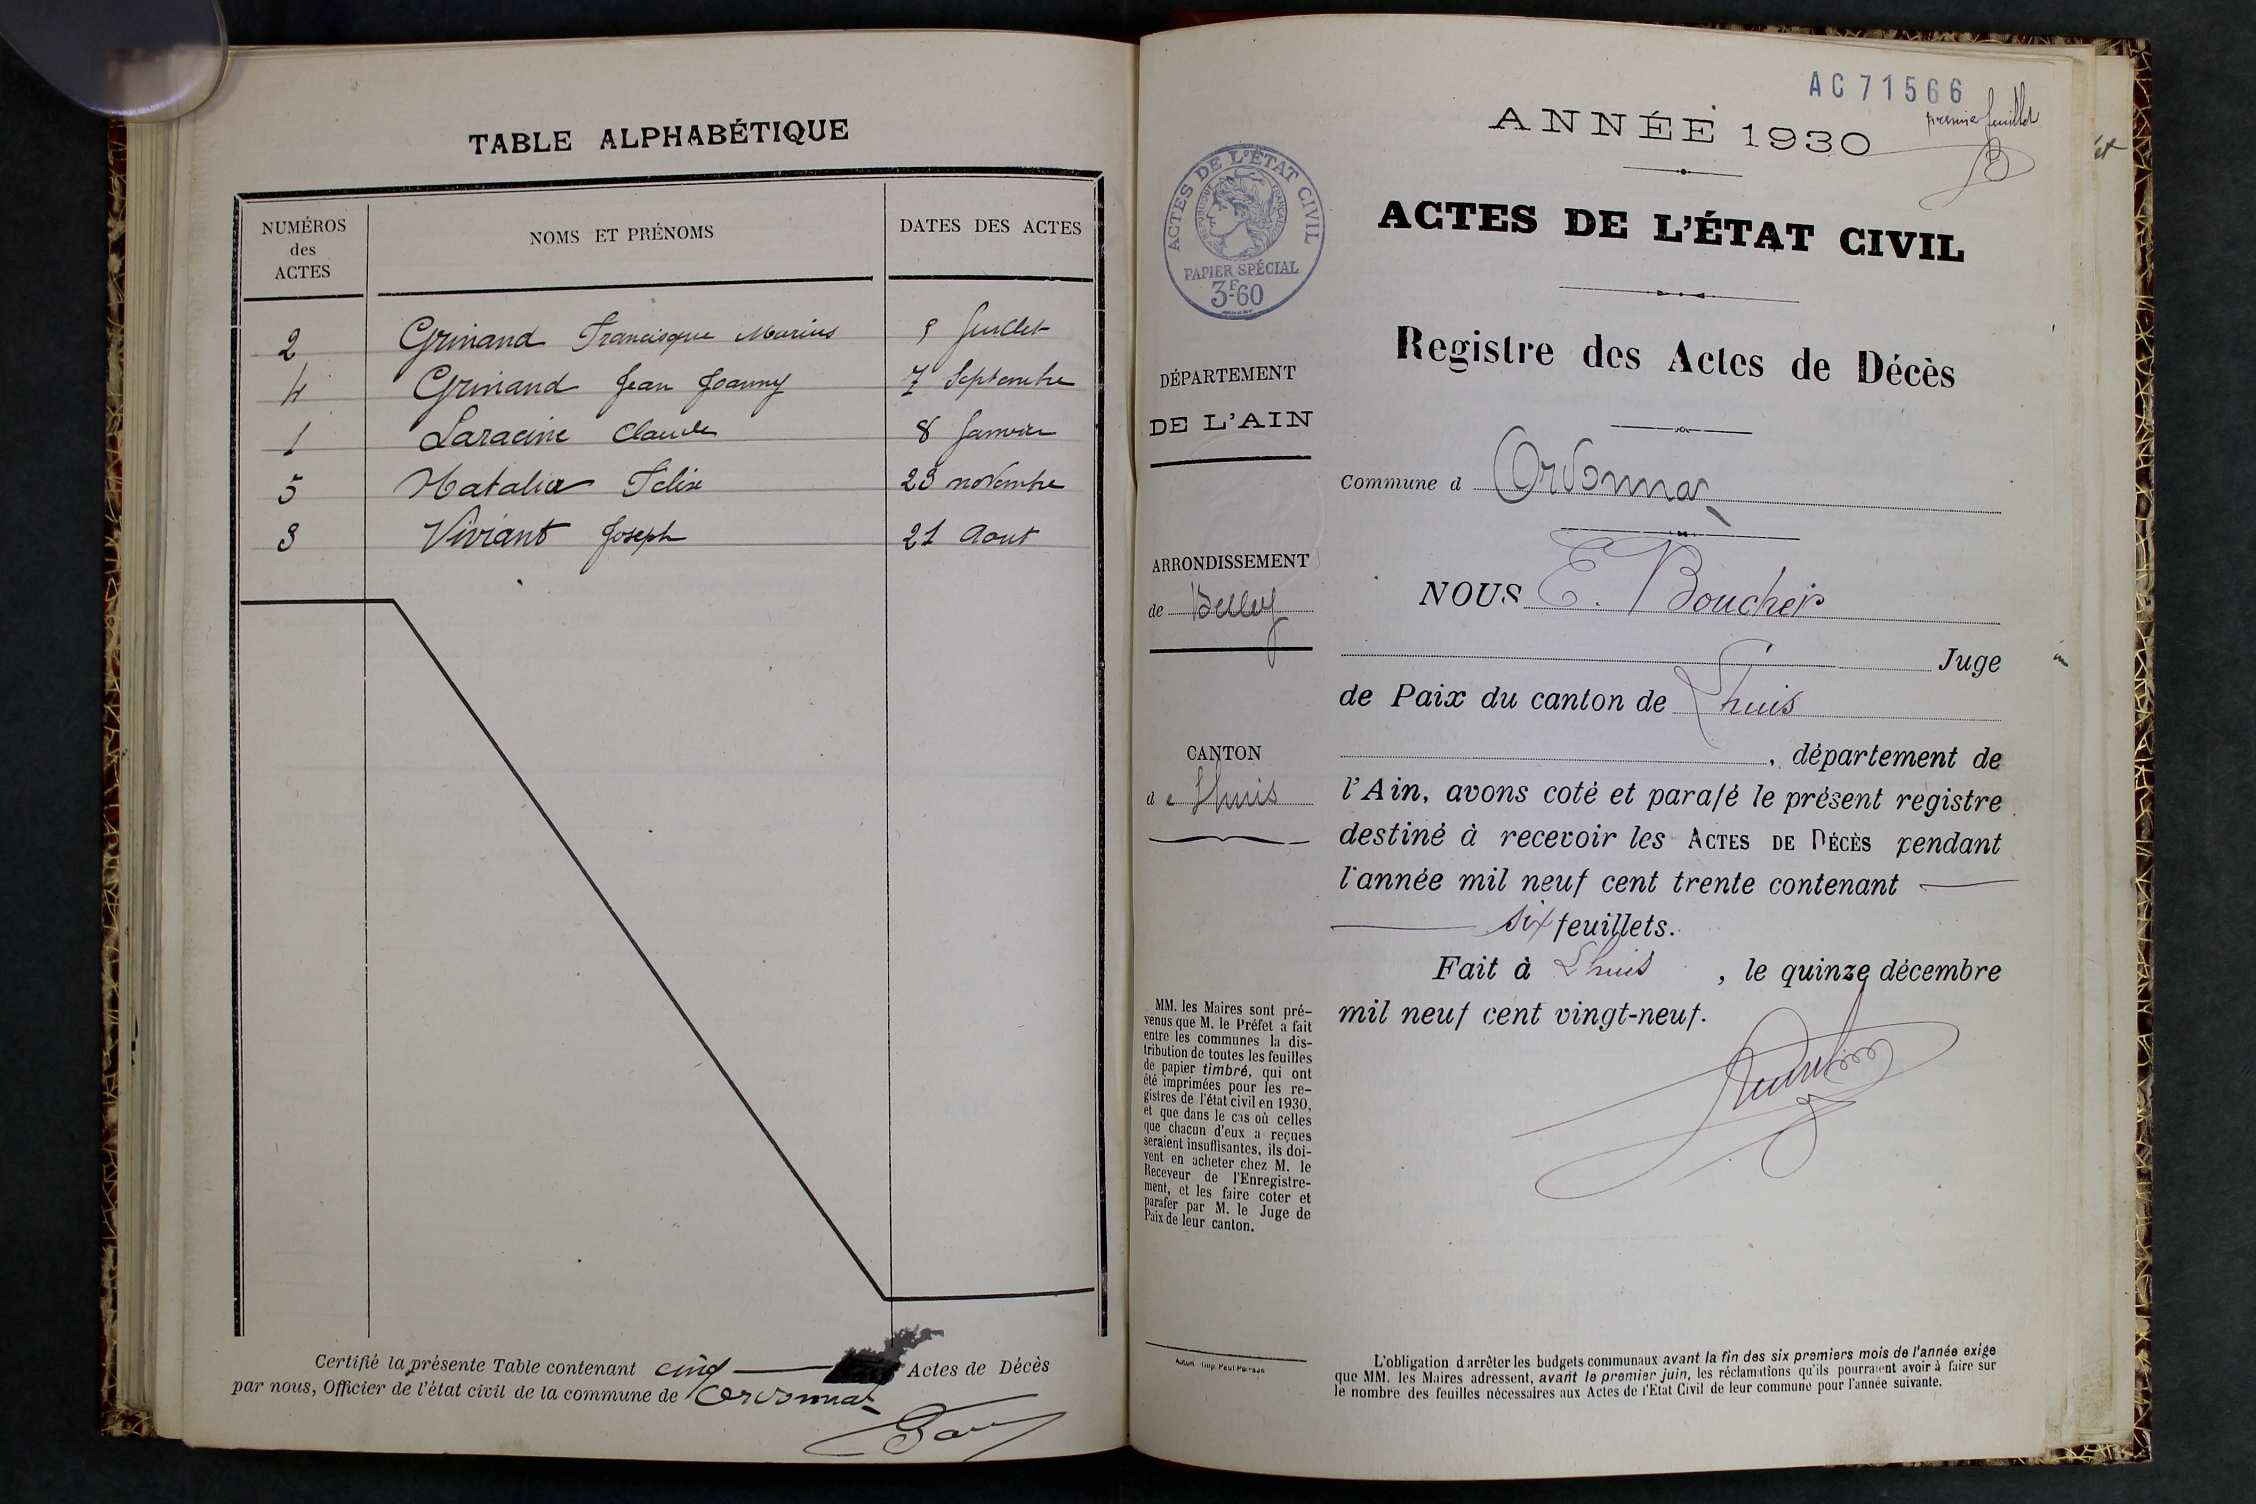 TABLE ALPHABÉTIQUE
NUMÉROS des ACTES NOMS ET PRÉNOMS DATES DES ACTES
2 Grinand Francisque Marius 9 Juillet
4 Grinand Jean Joanny 7 Septembre
1 Laracine Claude 8 Janvier
5 Natalia Félix 23 novembre
3 Viviant Joseph 21 Aout
Certifié la présente Table contenant cinq Actes de Décès
par nous, Officier de l'état civil de la commune de Ordonnaz
AC 71566
premier feuillet
ANNÉE 1930
ACTES DE L'ÉTAT CIVIL
RÉPUBLIQUE FRANÇAISE
PAPIER SPÉCIAL
3F60
ACTES DE L'ÉTAT CIVIL
Registre des Actes de Décès
DÉPARTEMENT
DE L'AIN
Commune d Ordonnaz
ARRONDISSEMENT
de Belley
CANTON
de Lhuis
NOUS E. Boucher
Juge
de Paix du canton de Lhuis
, département de
l'Ain, avons coté et parafé le présent registre
destiné à recevoir les ACTES DE DÉCÈS pendant
l'année mil neuf cent trente contenant
six feuillets.
Fait à Lhuis , le quinze décembre
mil neuf cent vingt-neuf.
MM. les Maires sont pré-
venus que M. le Préfet a fait
entre les communes la dis-
tribution de toutes les feuilles
de papier timbré, qui ont
été imprimées pour les re-
gistres de l'état civil en 1930,
et que dans le cas où celles
que chacun d'eux a reçues
seraient insuffisantes, ils doi-
vent en acheter chez M. le
Receveur de l'Enregistre-
ment, et les faire coter et
parafer par M. le Juge de
Paix de leur canton.
L'obligation d'arrêter les budgets communaux avant la fin des six premiers mois de l'année exige
que MM. les Maires adressent, avant le premier juin, les réclamations qu'ils pourraient avoir à faire sur
le nombre des feuilles nécessaires aux Actes de l'Etat Civil de leur commune pour l'année suivante.